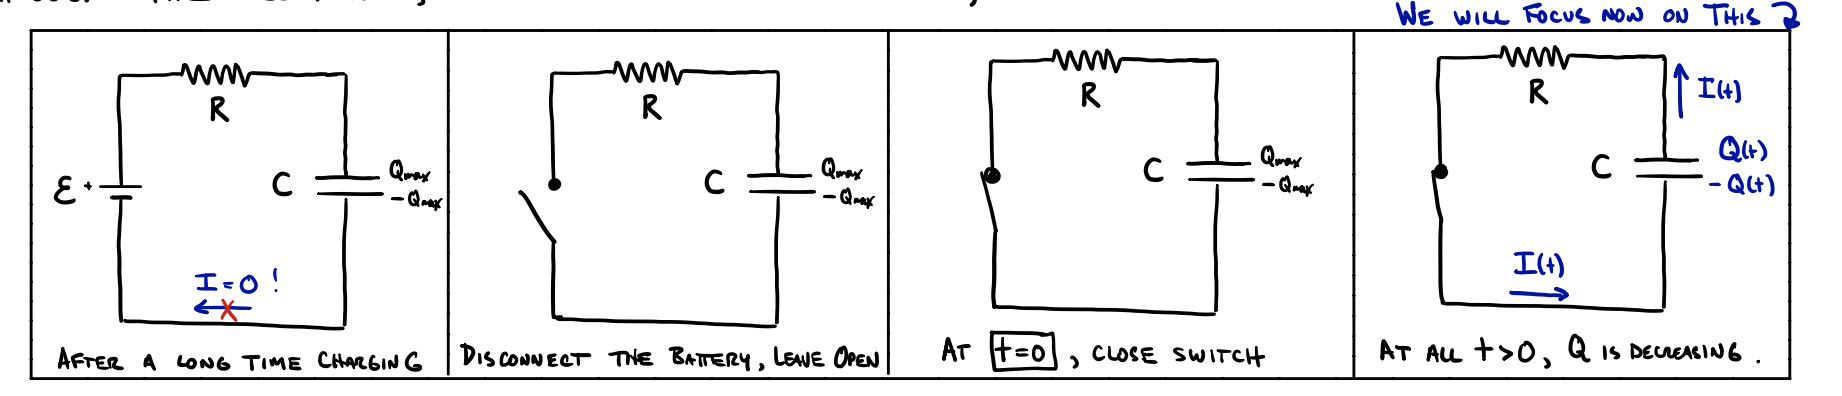 WE WILL FOCUS NOW ON THIS
R
ℰ +
C
Qmax
-Qmax
I=0!
AFTER A LONG TIME CHARGING
R
C
Qmax
-Qmax
DISCONNECT THE BATTERY, LEAVE OPEN
R
C
Qmax
-Qmax
AT t=0, CLOSE SWITCH
R
I(t)
C
Q(t)
-Q(t)
I(t)
AT ALL t>0, Q IS DECREASING.